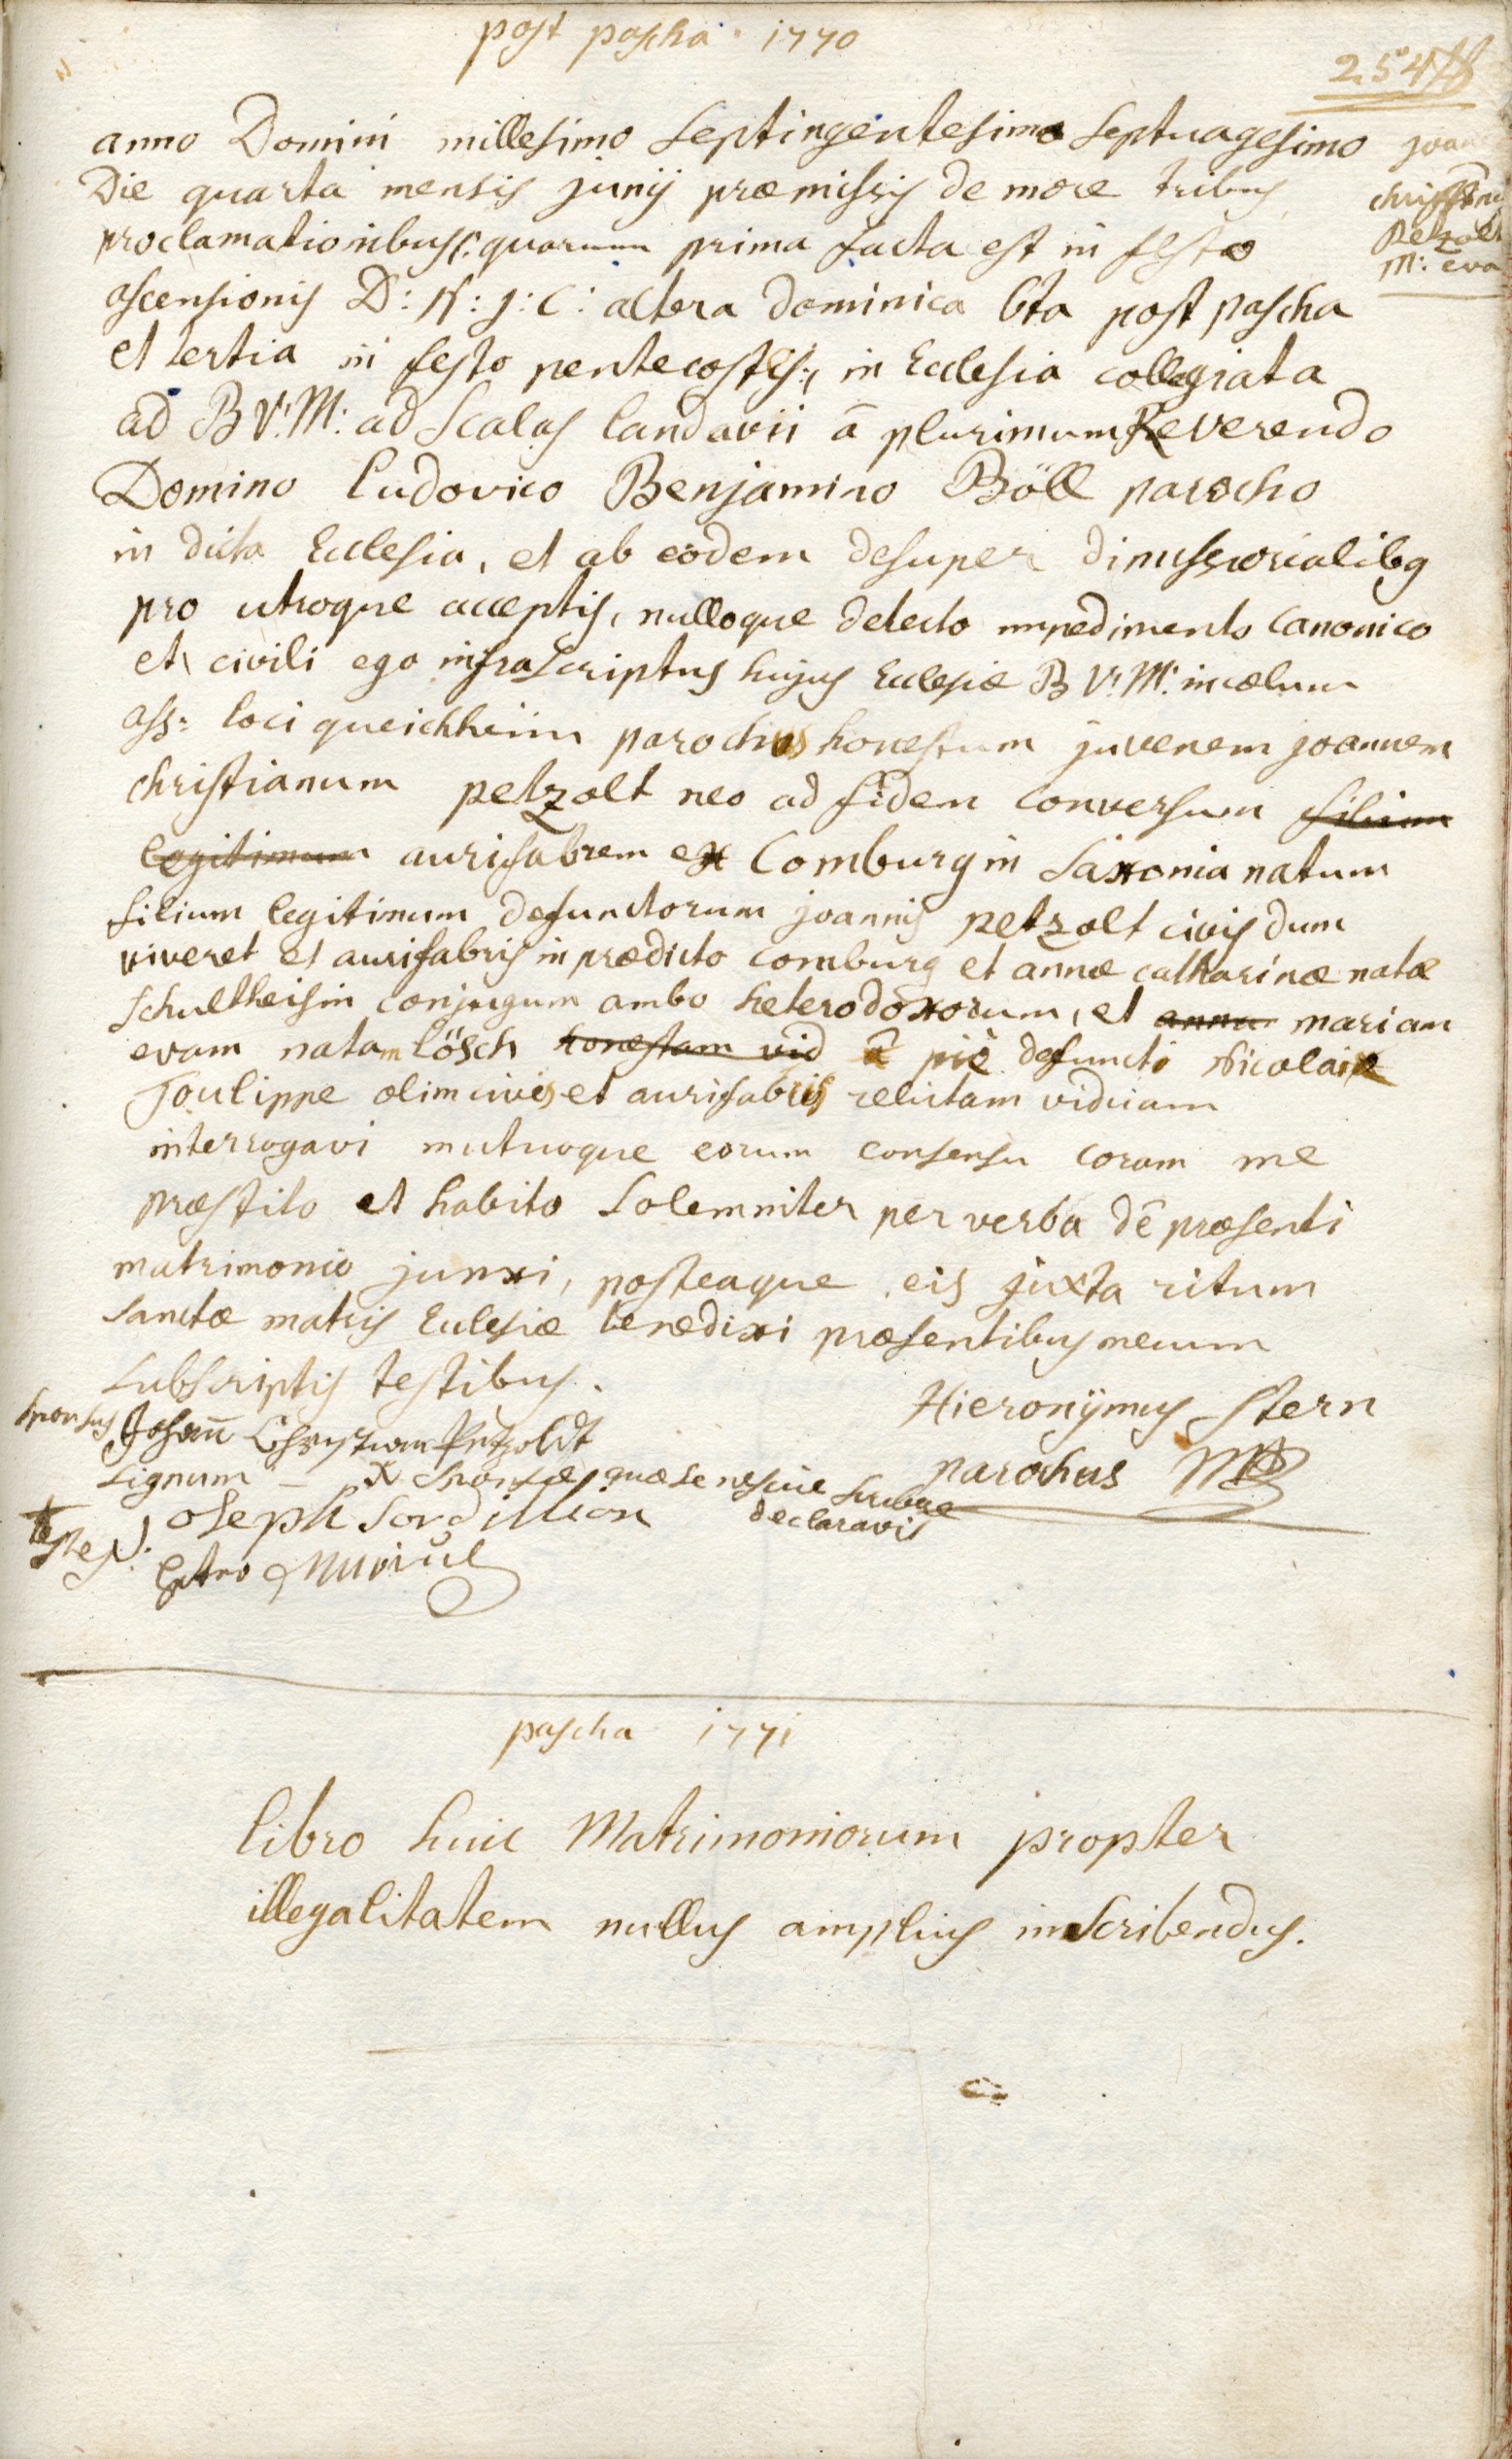 post pascha 1770
254
anno Domini millesimo septingentesimo septuagesimo
Die quarta mensis junij præmissis de more tribus
proclamationibus, quarum prima facta est in festo
ascensionis D: N: J: C: altera dominica 6ta post pascha
et tertia in festo pentecostes, in Ecclesia collegiata
ad B V: M: ad Scalas landavii â plurimum Reverendo
Domino ludovico Benjamino Böll parocho
in dicta Ecclesia, et ab eôdem desuper dimissorialibg
pro utroque acceptis, nulloque detecto impedimento canonico
et civili ego infrascriptus hujus Ecclesiæ B V: M: in cælum
ass: loci queichheim parochus honestum juvenem joannem
christianum petzolt neo ad fidem conversum filium
legitimum aurifabrem ex Comburg in Saxonia natum
filium legitimum defunctorum joannis petzolt civis dum
viveret et aurifabris in prædicto comburg et annæ catharinæ natæ
schultheisin conjugum ambo heterodoxorum, et anna mariam
evam natam lösch honestam vid â piè defuncti Nicolai
Toulippe olim civis et aurifabris relictam viduam
interrogavi mutuoque eorum consensu coram me
præstito et habito solemniter per verba dê præsenti
matrimonio junxi, posteaque eis juxta ritum
sanctæ matris Ecclesiæ benedixi præsentibus mecum
subscriptis testibus.
Hieronÿmus Stern
parochus
sponsus Johann Christian Petzoldt
signum X sponsæ quæ se nescire scribere
declaravit
testes: Joseph Sordillion
joann
christianus
Petzolt
M: eva
pascha 1771
libro huic Matrimoniorum propter
illegalitatem nullus amplius inscribendus.